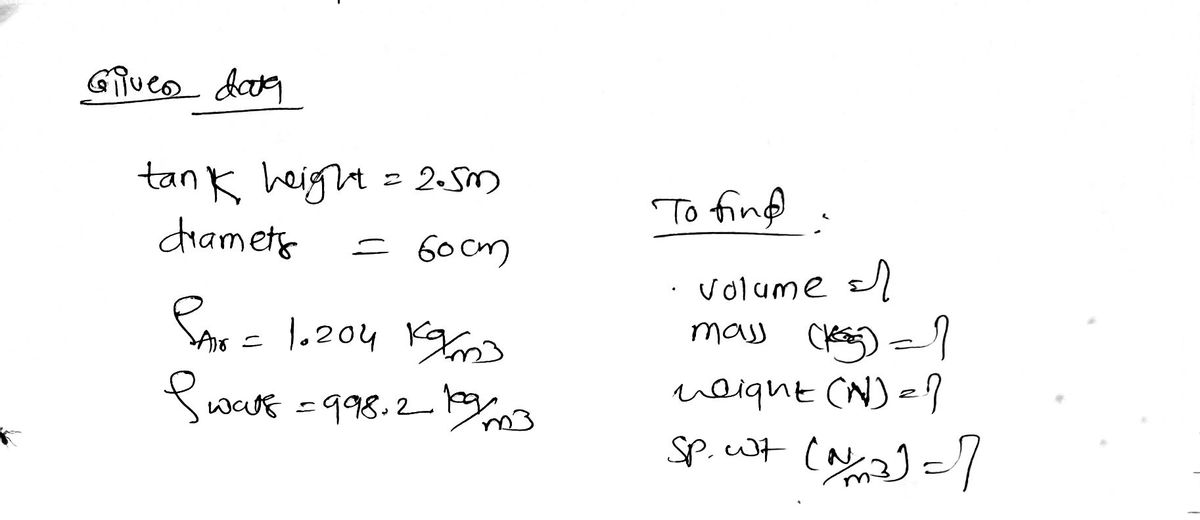 Given data
tank height = 2.5m
diameter = 60cm
ρAir = 1.204 Kg/m3
ρwater = 998.2 kg/m3
To find :
. volume = ?
mass (kg) = ?
weight (N) = ?
SP. wt (N/m3) = ?